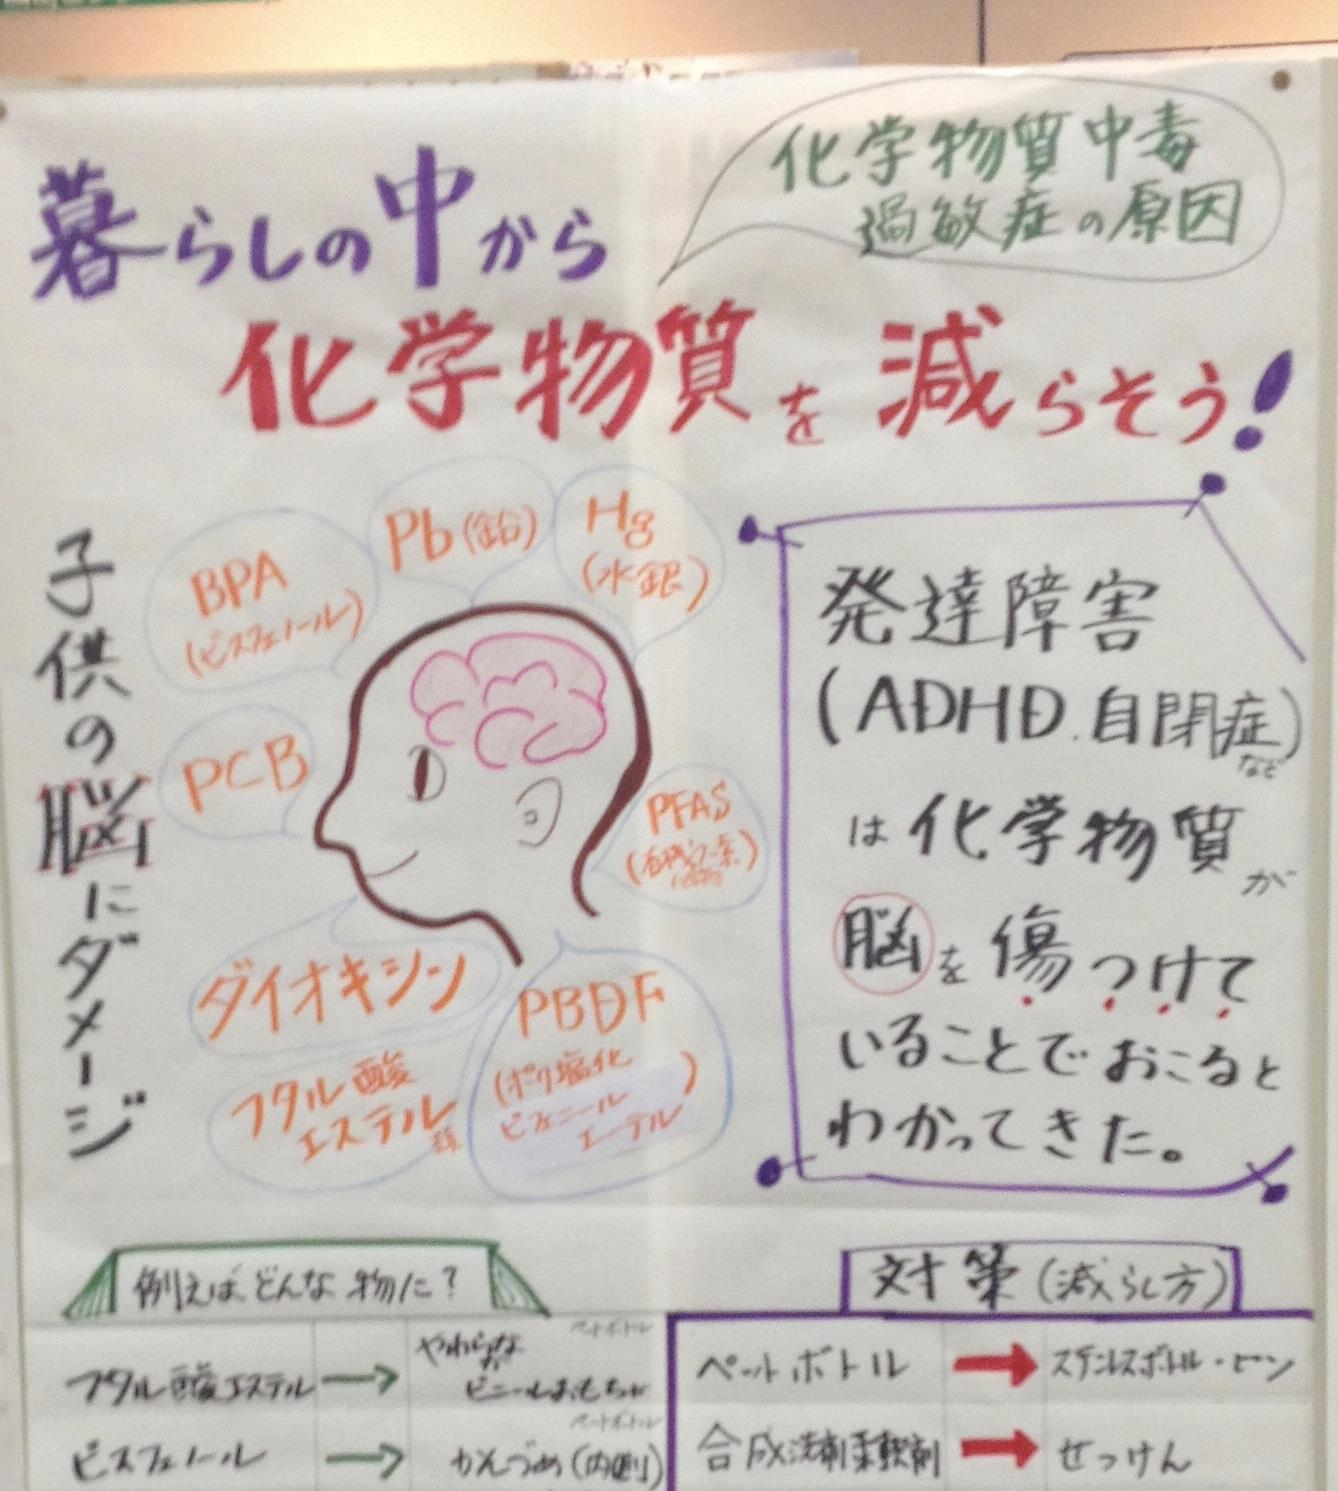 化学物質中毒
過敏症の原因
暮らしの中から
化学物質を減らそう!
子供の脳にダメージ
BPA
(ビスフェノール)
Pb(鉛)
Hg
(水銀)
PCB
PFAS
ダイオキシン
フタル酸
エステル
PBDF
(ポリ塩化
ビフェニール
エーテル)
発達障害
(ADHD.自閉症など)
は化学物質が
脳を傷つけて
いることでおこると
わかってきた。
例えばどんな物に?
フタル酸エステル → やわらかな ビニールおもちゃ ペットボトル
ビスフェノール → かんづめ(内側) ペットボトル
対策(減らし方)
ペットボトル → ステンレスボトル・ビン
合成洗剤柔軟剤 → せっけん